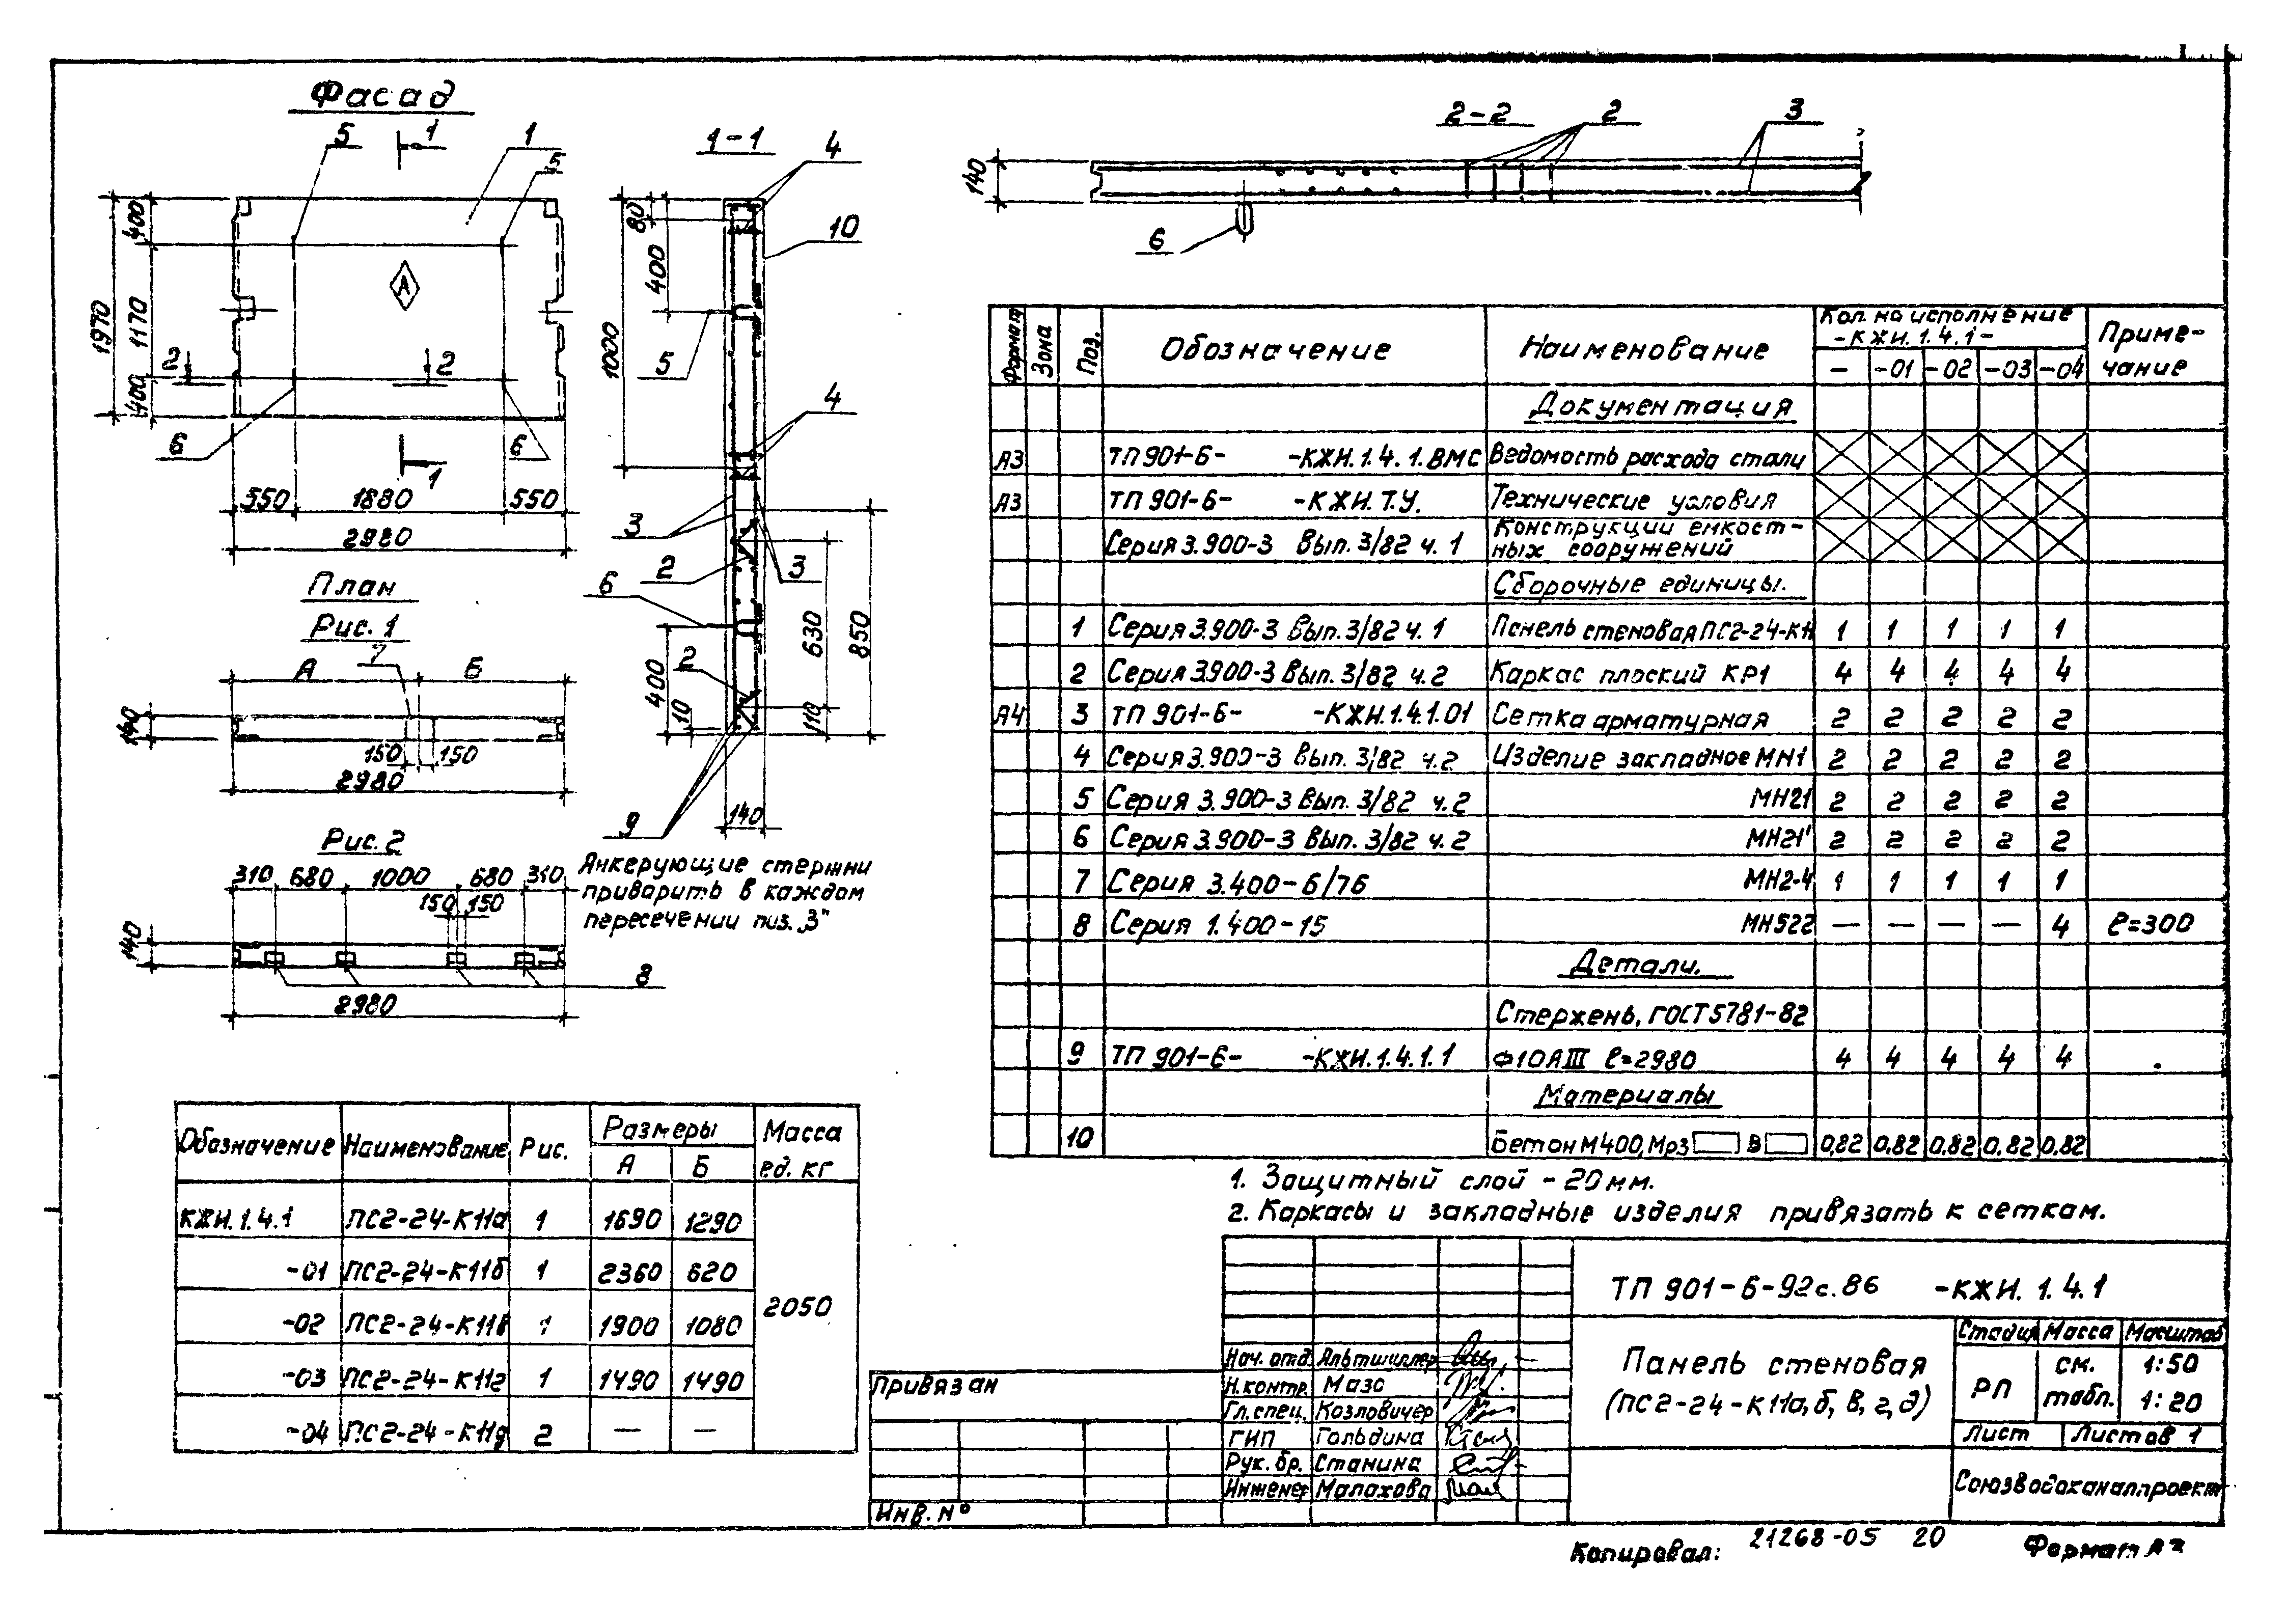 Фасад
5
1
1
5
400
1170
400
1970
А
2
2
6
6
1
550
1880
550
2980
План
Рис. 1
7
А
Б
140
150
150
2980
Рис. 2
310
680
1000
680
310
150
150
140
8
2980
1-1
4
80
10
400
1000
5
4
3
2
3
6
630
850
2
400
10
110
9
140
Анкерующие стержни
приварить в каждом
пересечении поз. „3"
2-2
2
3
140
6
Формат
Зона
Поз.
Обозначение
Наименование
Кол. на исполнение
-КЖИ.1.4.1-
Приме-
чание
— -01 -02 -03 -04
Документация
А3 ТП 901-6- -КЖИ.1.4.1.ВМС Ведомость расхода стали
А3 ТП 901-6- -КЖИ.Т.У. Технические условия
Серия 3.900-3 Вып. 3/82 ч. 1 Конструкции емкост-
ных сооружений
Сборочные единицы.
1 Серия 3.900-3 Вып. 3/82 ч. 1 Панель стеновая ПС2-24-К11 1 1 1 1 1
2 Серия 3.900-3 Вып. 3/82 ч.2 Каркас плоский КР1 4 4 4 4 4
А4 3 ТП 901-6- -КЖИ.1.4.1.01 Сетка арматурная 2 2 2 2 2
4 Серия 3.900-3 Вып. 3/82 ч.2 Изделие закладное МН1 2 2 2 2 2
5 Серия 3.900-3 Вып. 3/82 ч.2 МН21 2 2 2 2 2
6 Серия 3.900-3 Вып. 3/82 ч.2 МН21' 2 2 2 2 2
7 Серия 3.400-6/76 МН2-4 1 1 1 1 1
8 Серия 1.400-15 МН522 — — — — 4 ℓ=300
Детали.
Стержень, ГОСТ 5781-82
9 ТП 901-6- -КЖИ.1.4.1.1 Ф10АIII ℓ=2980 4 4 4 4 4
Материалы
10 Бетон М400, Мрз В 0,82 0,82 0,82 0,82 0,82
1. Защитный слой - 20мм.
2. Каркасы и закладные изделия привязать к сеткам.
Обозначение Наименование Рис. Размеры Масса
А Б ед. кг
КЖИ.1.4.1 ПС2-24-К11а 1 1690 1290
-01 ПС2-24-К11б 1 2360 620
2050
-02 ПС2-24-К11в 1 1900 1080
-03 ПС2-24-К11г 1 1490 1490
-04 ПС2-24-К11д 2 — —
Привязан
Инв. №
ТП 901-6-92с.86 -КЖИ. 1.4.1
Нач. отд. Альтшуллер
Н.контр. Мазо
Гл. спец. Козловичер
ГИП Гольдина
Рук. бр. Станина
Инженер Малахова
Панель стеновая
(ПС2-24-К11а,б,в,г,д)
Стадия Масса Масштаб
РП см.
табл. 1:50
1:20
Лист Листов 1
Союзводоканалпроект
Копировал: 21268-05 20 Формат А3